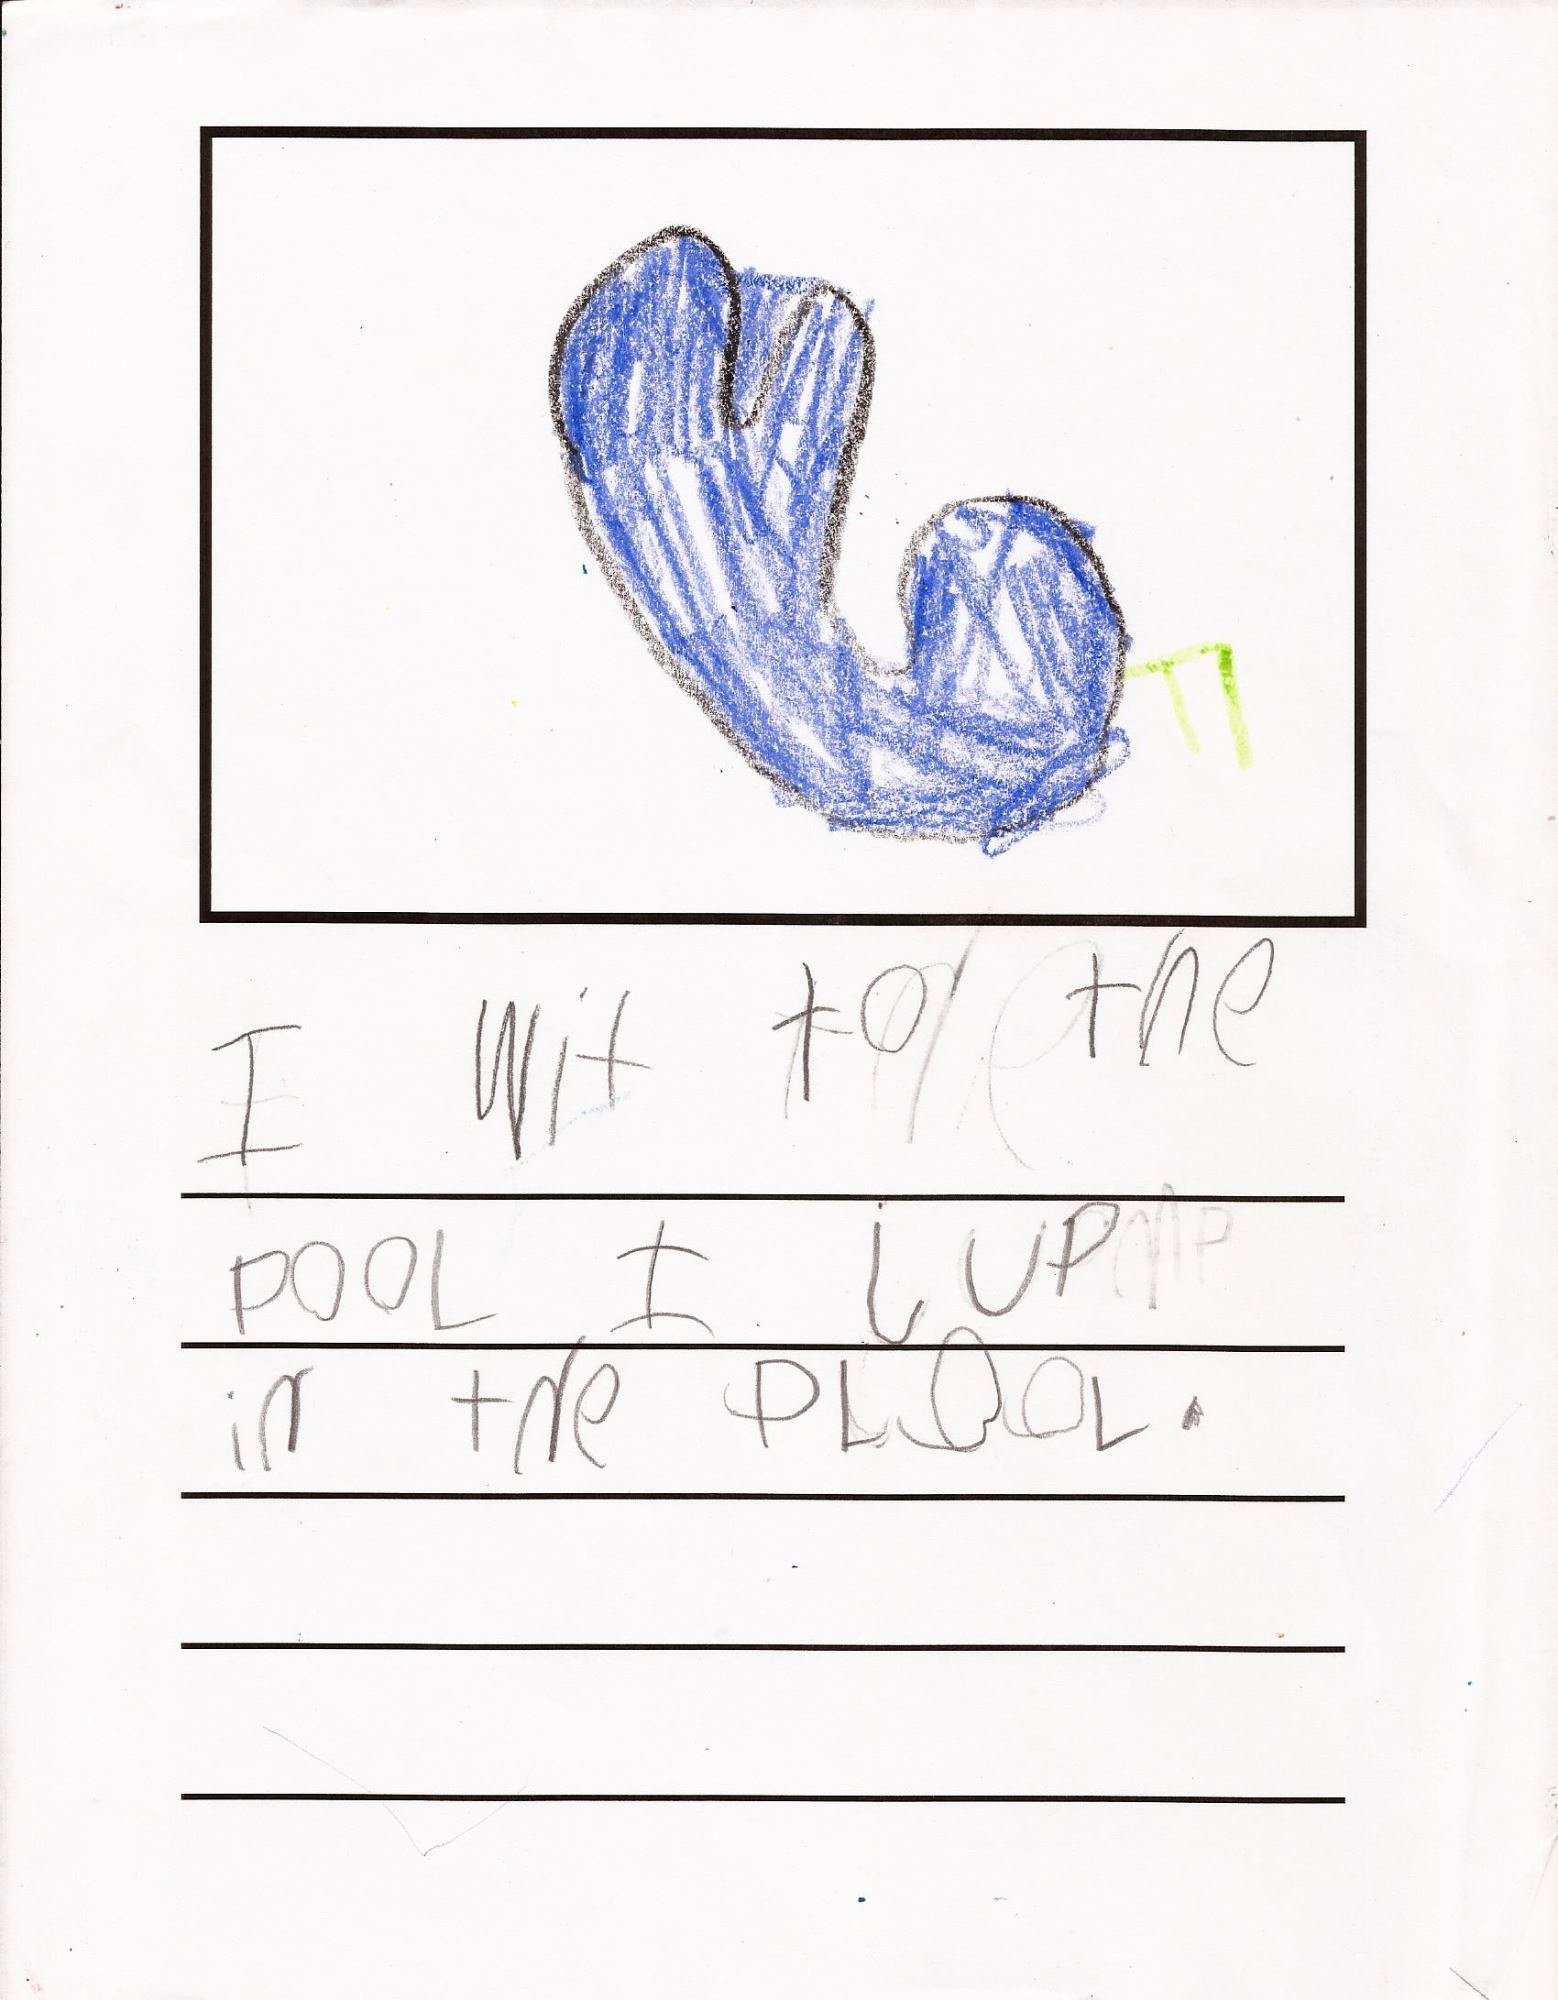 I wit to the
POOL I jUP
in the PLOOL.